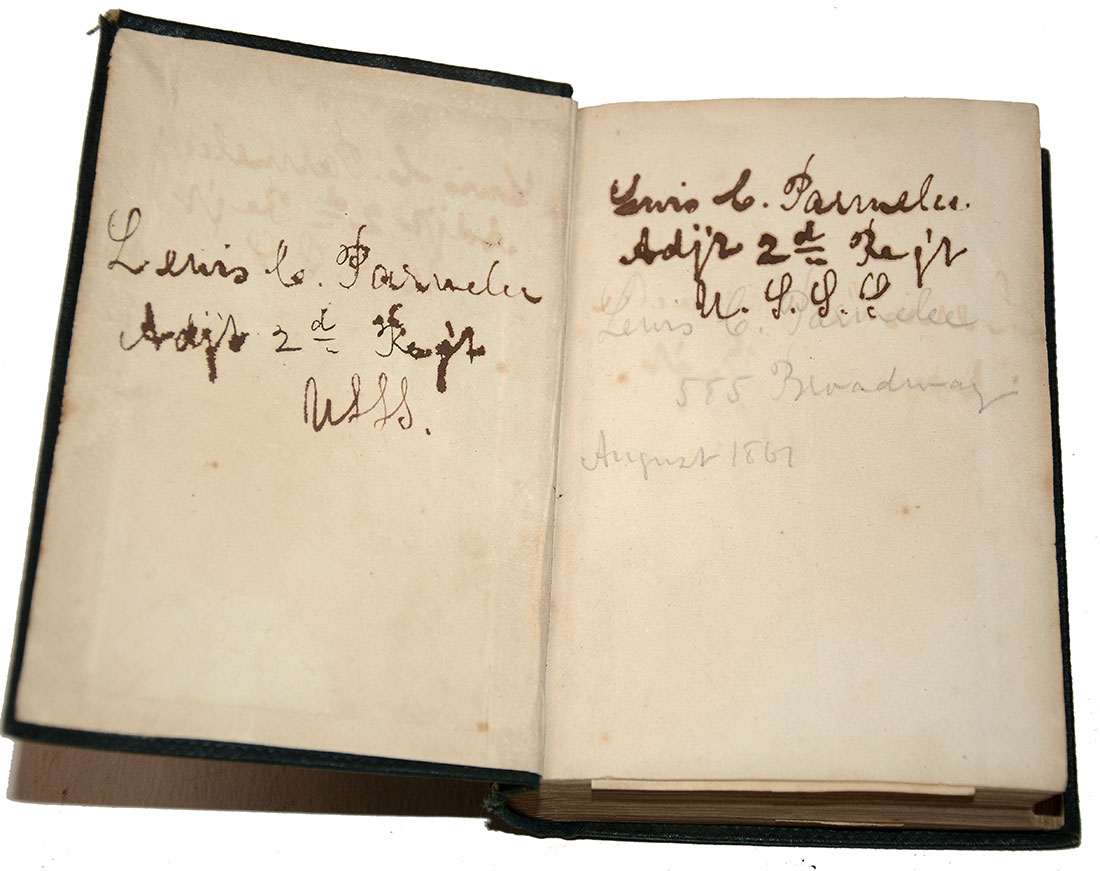 Lewis C. Parmelee
Adjt 2d Regt
USSS.
Lewis C. Parmelee.
Adjt 2d Regt
U. S. S. S
Lewis C. Parmelee
555 Broadway
August 1861